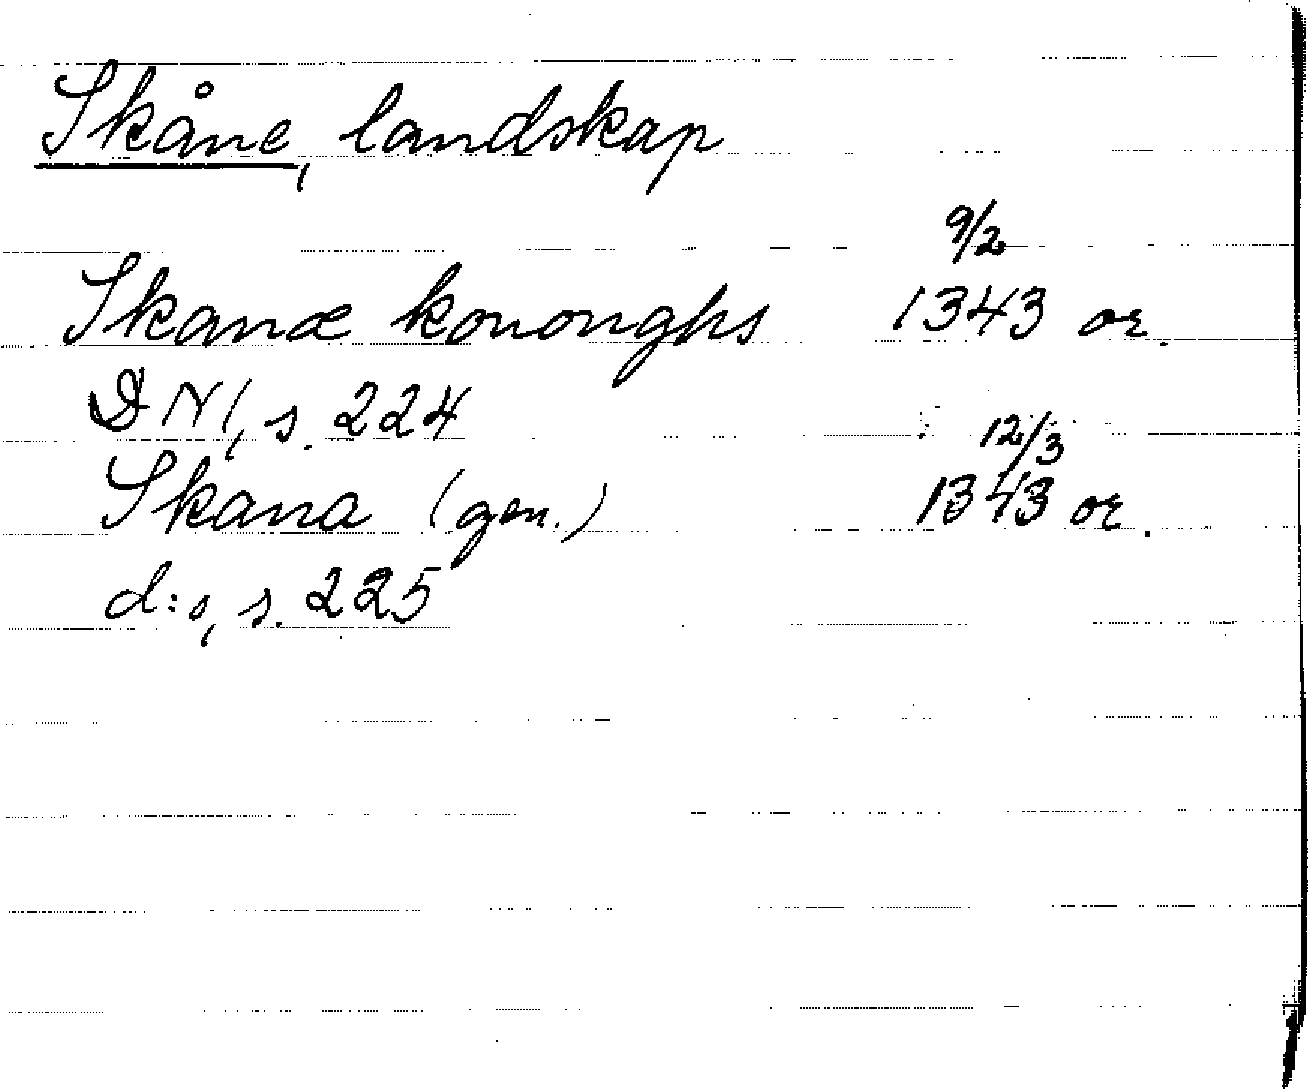 Skåne, landskap
9/2
Skanæ kononghs 1343 or.
DN 1, s. 224
12/3
Skana (gen.) 1343 or.
d:o, s. 225